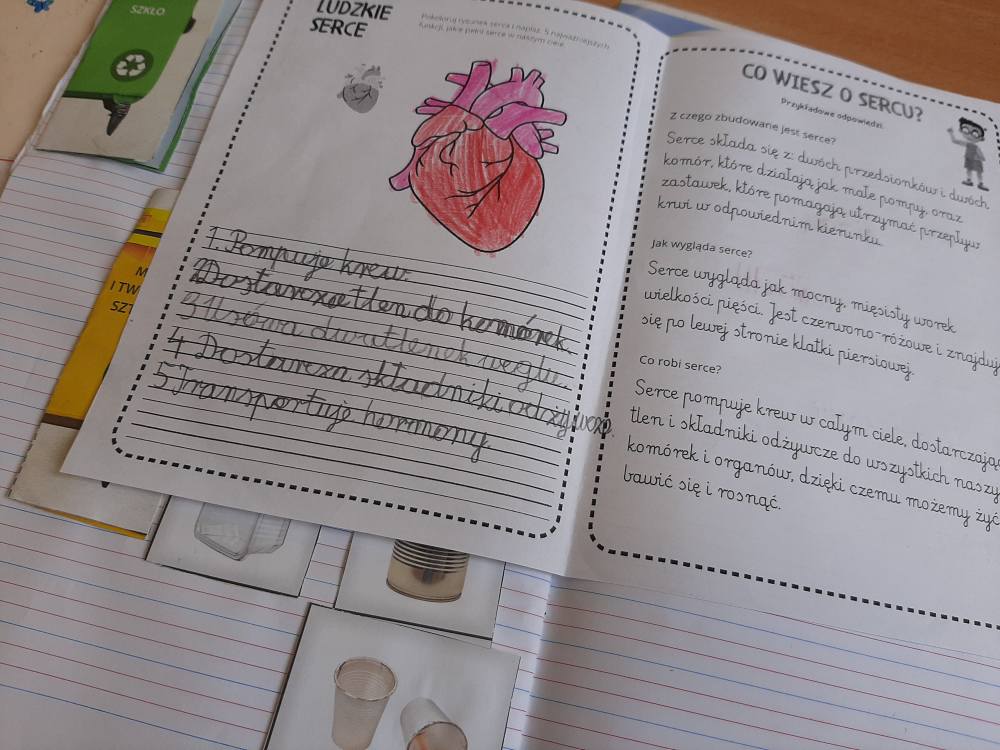 SZKŁO
M
I TW
SZT
LUDZKIE
SERCE
Pokoloruj rysunek serca i napisz 5 najważniejszych
funkcji, jakie pełni serce w naszym ciele.
1. Pompuje krew
2 Dostarcza tlen do komórek.
3 Usówa dwutlenek węglu.
4 Dostarcza składniki odżywcze.
5 Transportuje hormony.
CO WIESZ O SERCU?
Przykładowe odpowiedzi.
z czego zbudowane jest serce?
Serce składa się z: dwóch przedsionków i dwóch
komór, które działają jak małe pompy, oraz
zastawek, które pomagają utrzymać przepływ
krwi w odpowiednim kierunku.
Jak wygląda serce?
Serce wygląda jak mocny, mięsisty worek
wielkości pięści. Jest czerwono-różowe i znajduj
się po lewej stronie klatki piersiowej.
Co robi serce?
Serce pompuje krew w całym ciele, dostarczając
tlen i składniki odżywcze do wszystkich naszy
komórek i organów, dzięki czemu możemy żyć
bawić się i rosnąć.